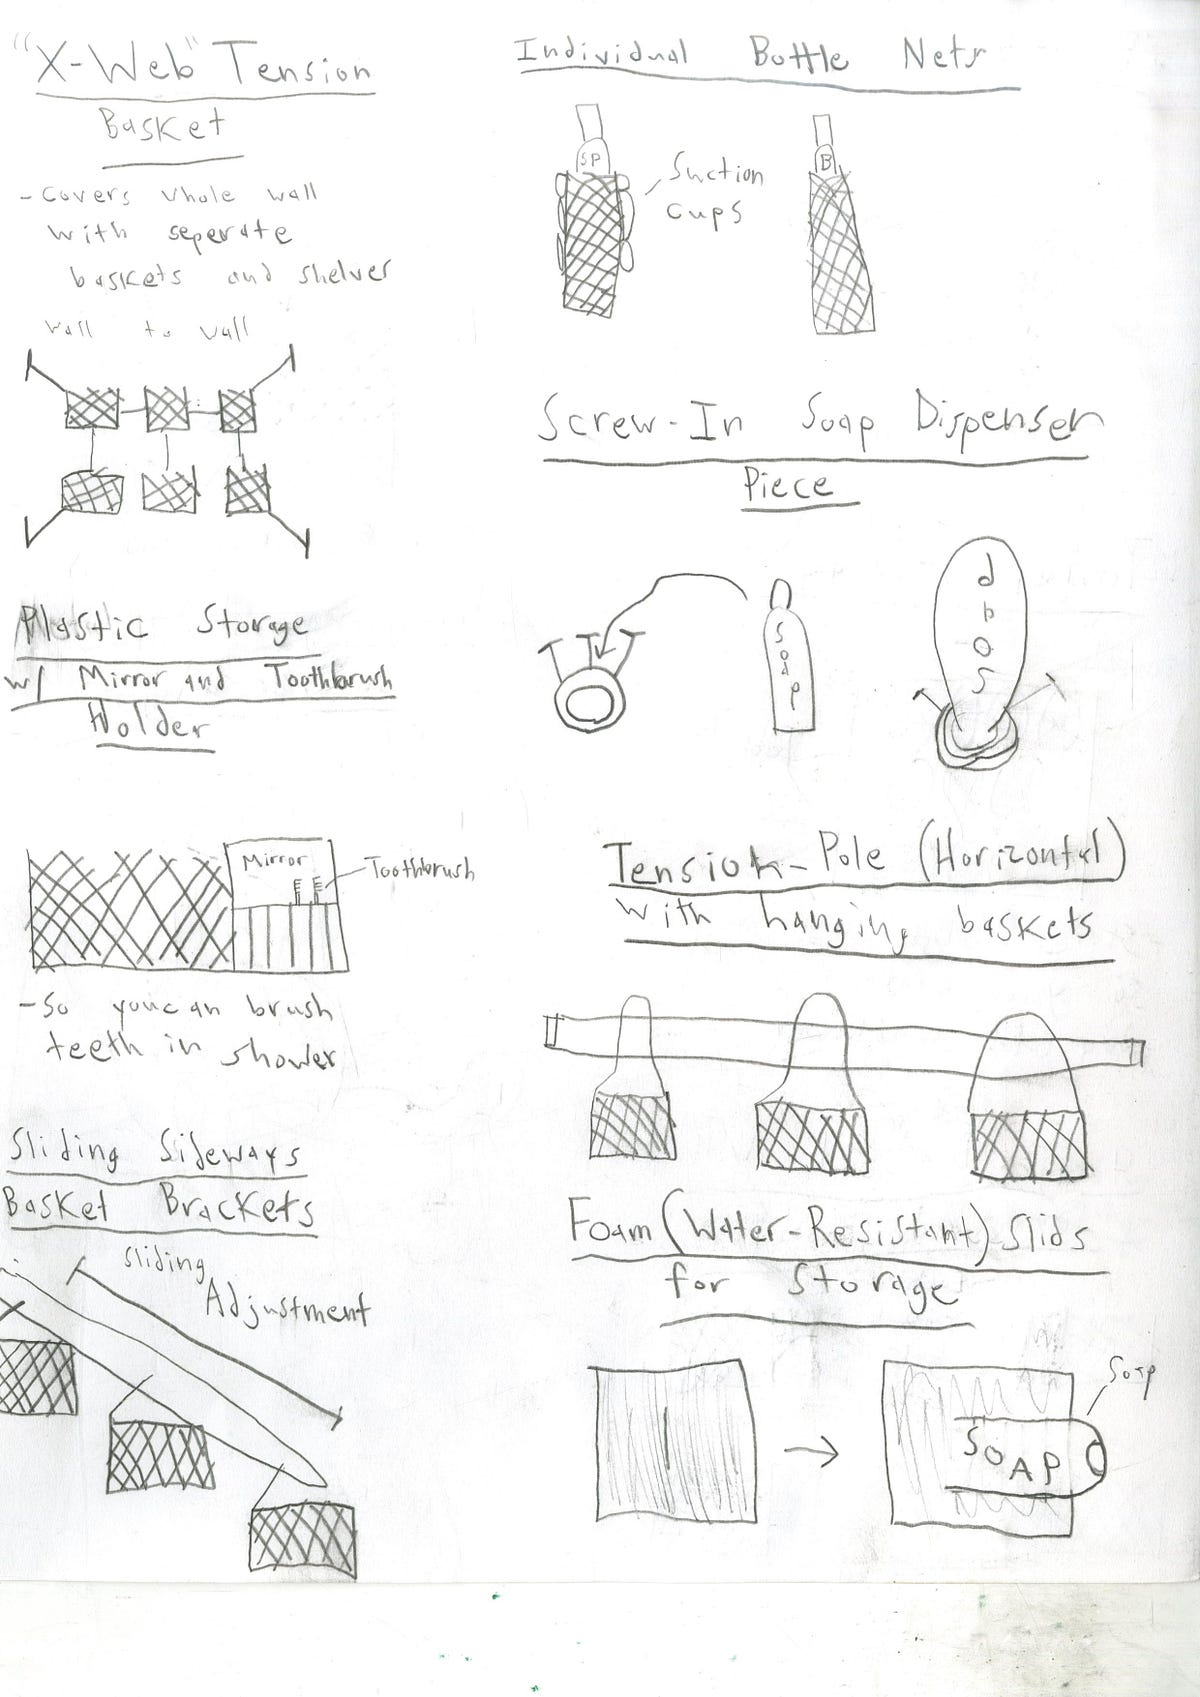 "X-Web" Tension
Basket
- Covers whole wall
with seperate
baskets and shelves
wall to wall
Plastic Storage
w/ Mirror and Toothbrush
Holder
Mirror
Toothbrush
- So you can brush
teeth in shower
Sliding Sideways
Basket Brackets
Sliding
Adjustment
Individual Bottle Nets
SP
B
Suction
cups
Screw-In Soap Dispenser
Piece
Soap
Soap
Tension-Pole (Horizontal)
with hanging baskets
Foam (Water-Resistant) Slids
for Storage
Soap
SOAP